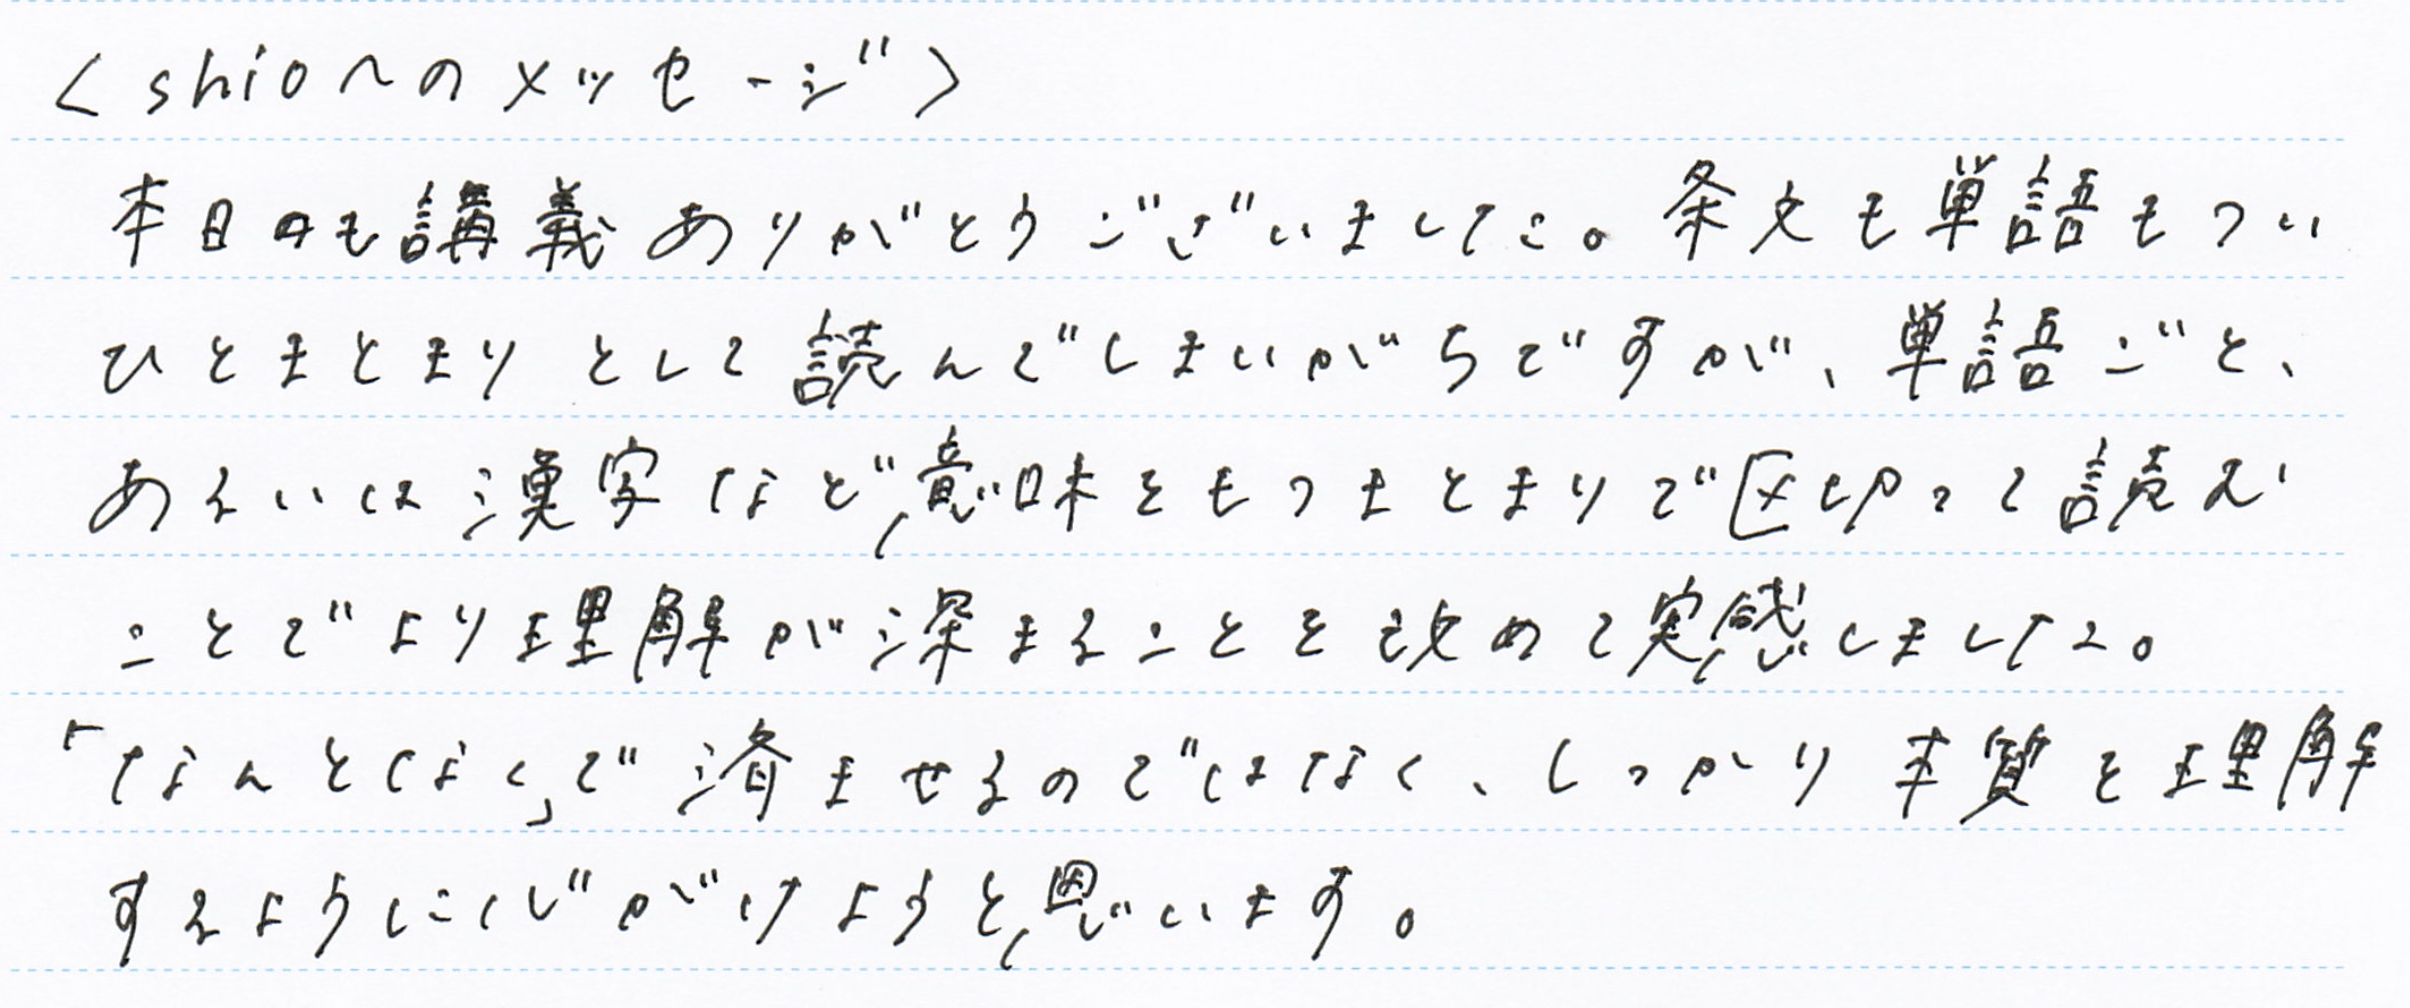 <shioへのメッセージ>
本日も講義ありがとうございました。条文も単語もつい
ひとまとまりとして読んでしまいがちですが、単語ごと、
あるいは漢字など意味をもつまとまりで区切って読む
ことでより理解が深まることを改めて実感しました。
「なんとなく」で済ませるのではなく、しっかり本質を理解
するように心がけようと思います。